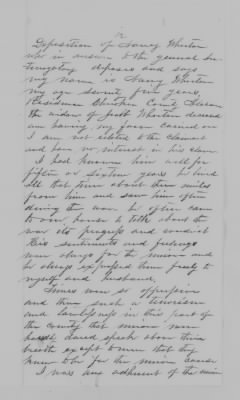 2
Deposition of Nancy Wharton
who in answer to the general in-
terrogatory deposes and says
my name is Nancy Wharton
my age seventy five years,
Residence County
the widow of Wharton deceased
am farming, my
I am not related to the claimant
and have no interest in his claim
I had known him well for
fifteen or sixteen years he lived
all that time about three miles
from me and saw him often
during the war he often came
to our house to talk about the
war its progress and conduct
His sentiments and feelings
were always for the union and
he always expressed them freely to
myself and husband,
Times were so oppressive
and there such a terrorism
and lawlessness in this part of
the county that union men
hardly dared speak above their
breath except to men that they
knew to be for the union cause
I was an adherent of the union